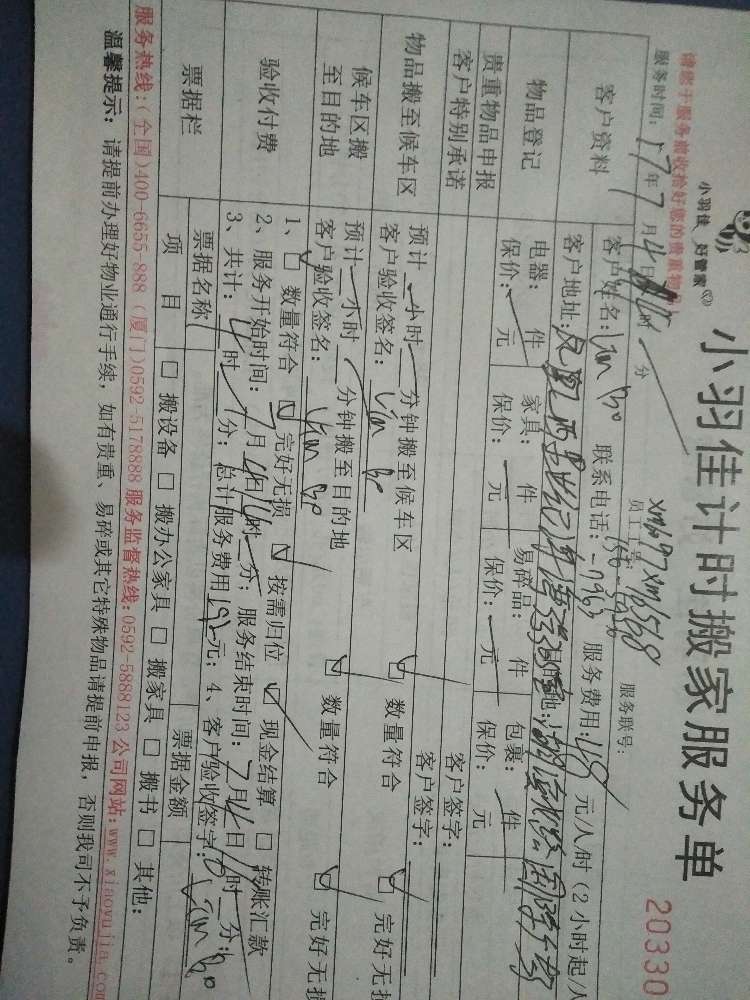 小羽佳计时搬家服务单
20330
小羽佳 好管家
请您于服务前收拾好您的贵重物品
服务时间: 17年7月4日 时 分
员工工号: XM697 XM6568
服务联号:
客户资料
客户姓名: Yan Bo 联系电话: 服务费用: 48 元/人/时 (2小时起/人
客户地址: 凤凰
物品登记
电器: 件 家具: 件 易碎品: 件 包裹: 件
保价: 元 保价: 元 保价: 元 保价: 元
贵重物品申报
客户签字:
客户特别承诺
客户签字:
物品搬至候车区
预计 小时 分钟搬至候车区 数量符合 完好无损
客户验收签名: Yan Bo
候车区搬至目的地
预计 小时 分钟搬至目的地 数量符合 完好无损
客户验收签名: Yan Bo
验收付费
1、 数量符合 完好无损 按需归位 现金结算 转账汇款
2、服务开始时间: 7月4日 时 分; 服务结束时间: 7月4日 时 分;
3、共计: 4时 分; 总计服务费用192元; 4、客户验收签字: Yan Bo
票据栏
票据名称 票据金额
项目 搬设备 搬办公家具 搬家具 搬书 其他:
服务热线:(全国)400-6655-888 (厦门)0592-5178888 服务监督热线:0592-5888123 公司网站:www.xiaoyujia.com
温馨提示: 请提前办理好物业通行手续, 如有贵重、易碎或其它特殊物品请提前申报, 否则我司不予负责。